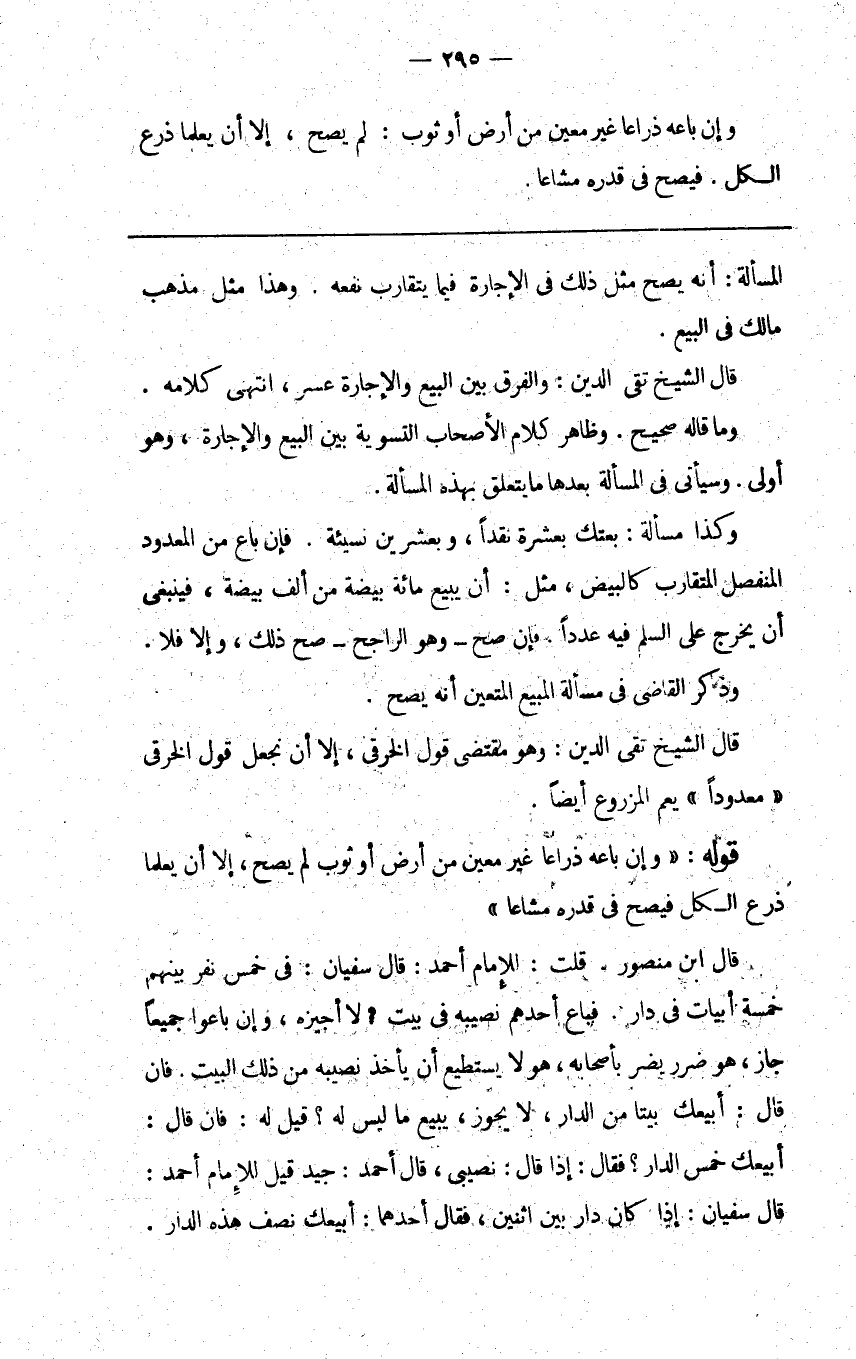 — ٢٩٥ —
وإن باعه ذراعا غير معين من أرض أو ثوب : لم يصح ، إلا أن يعلما ذرع
الكل . فيصح فى قدره مشاعا .
المسألة : أنه يصح مثل ذلك فى الإجارة فيما يتقارب نفعه . وهذا مثل مذهب
مالك فى البيع .
قال الشيخ تقى الدين : والفرق بين البيع والإجارة عسر ، انتهى كلامه .
وما قاله صحيح . وظاهر كلام الأصحاب التسوية بين البيع والإجارة ، وهو
أولى . وسيأتى فى المسألة بعدها ما يتعلق بهذه المسألة .
وكذا مسألة : بعتك بعشرة نقداً ، وبعشرين نسيئة . فإن باع من المعدود
المنفصل المتقارب كالبيض ، مثل : أن يبيع مائة بيضة من ألف بيضة ، فينبغى
أن يخرج على السلم فيه عدداً . فإن صح – وهو الراجح – صح ذلك ، وإلا فلا .
وذكر القاضى فى مسألة المبيع المتعين أنه يصح .
قال الشيخ تقى الدين : وهو مقتضى قول الخرقى ، إلا أن نجعل قول الخرقى
« معدوداً » يعم المزروع أيضاً .
قوله : « وإن باعه ذراعا غير معين من أرض أو ثوب لم يصح ، إلا أن يعلما
ذرع الكل فيصح فى قدره مشاعا »
قال ابن منصور . قلت : للإمام أحمد : قال سفيان : فى خمس نفر بينهم
خمسة أبيات فى دار . فباع أحدهم نصيبه فى بيت ؟ لا أجيزه ، وإن باعوا جميعاً
جاز ، هو ضرر يضر بأصحابه ، هو لا يستطيع أن يأخذ نصيبه من ذلك البيت . فان
قال : أبيعك بيتا من الدار ، لا يجوز ، يبيع ما ليس له ؟ قيل له : فان قال :
أبيعك خمس الدار ؟ فقال : إذا قال : نصيبى ، قال أحمد : جيد قيل للإمام أحمد :
قال سفيان : إذا كان دار بين اثنين ، فقال أحدهما : أبيعك نصف هذه الدار .